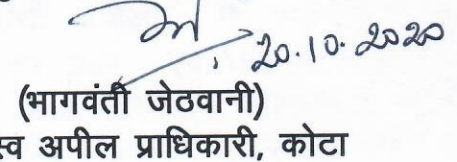 20.10.2020
(भागवंती जेठवानी)
स्व अपील प्राधिकारी, कोटा